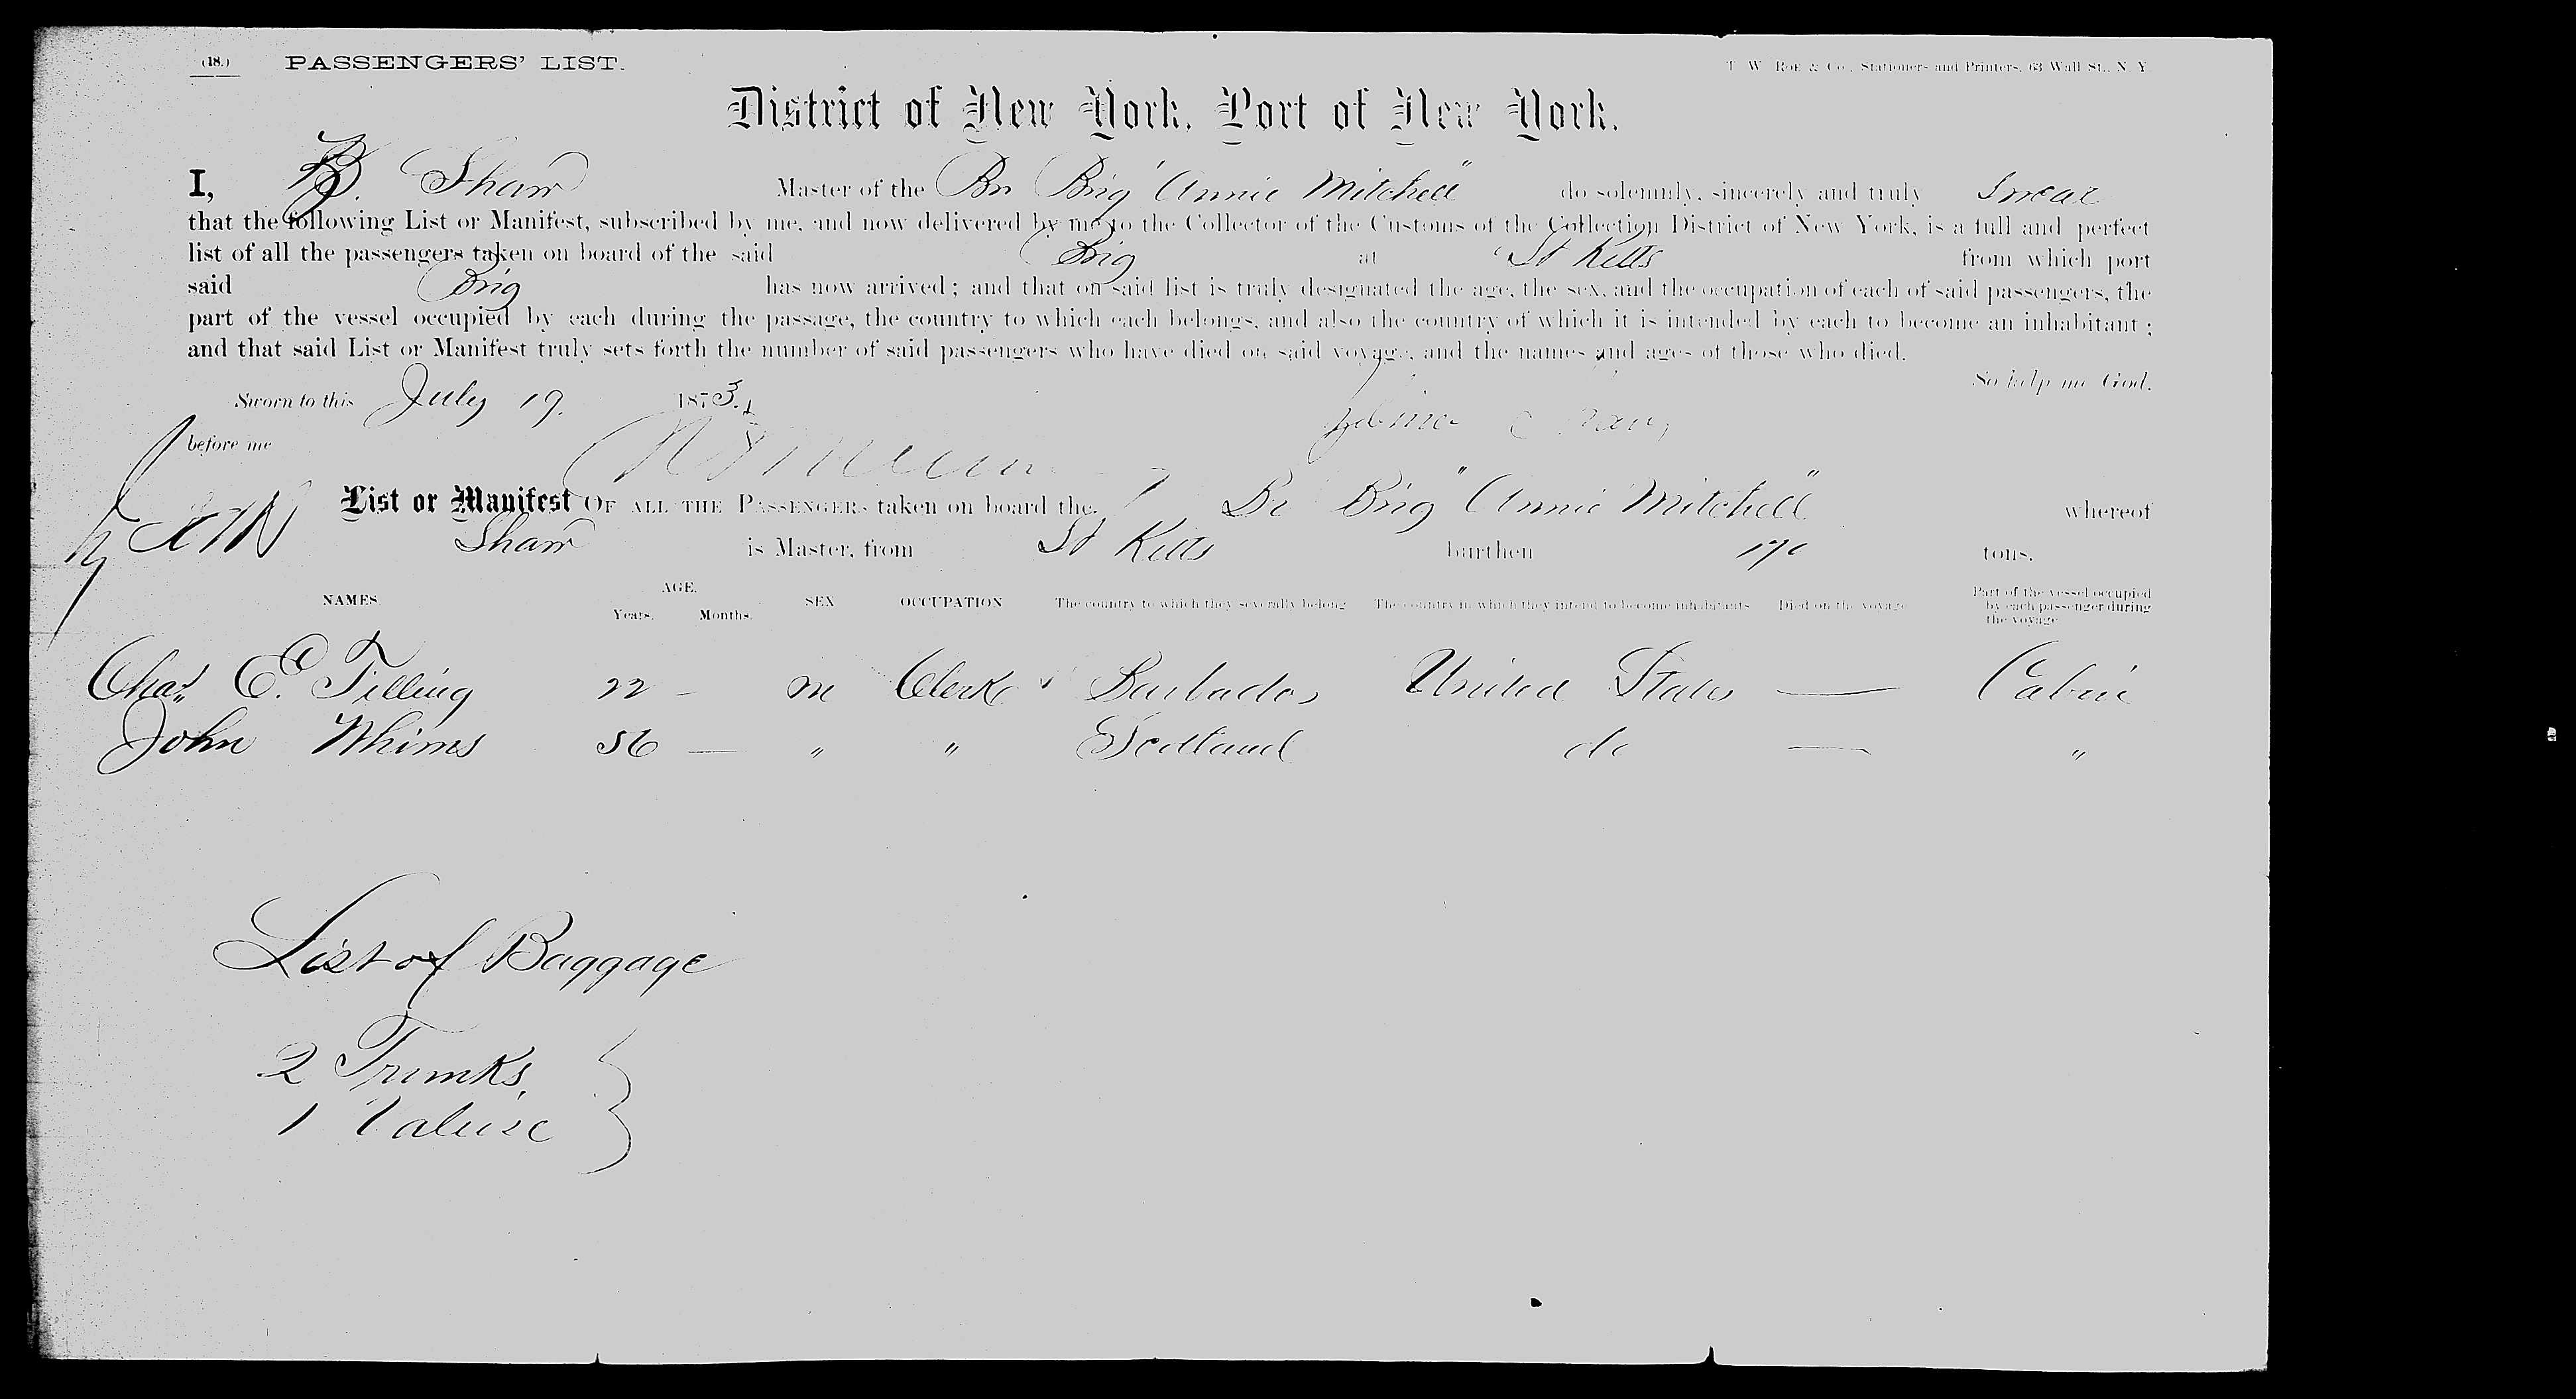 (18.) PASSENGERS' LIST. T. W. Roe & Co., Stationers and Printers, 63 Wall St., N. Y.
District of New York, Port of New York.
I, B. Shaw Master of the Br Brig "Annie Mitchell" do solemnly, sincerely and truly Swear
that the following List or Manifest, subscribed by me, and now delivered by me to the Collector of the Customs of the Collection District of New York, is a full and perfect
list of all the passengers taken on board of the said Brig at St Kitts from which port
said Brig has now arrived; and that on said list is truly designated the age, the sex, and the occupation of each of said passengers, the
part of the vessel occupied by each during the passage, the country to which each belongs, and also the country of which it is intended by each to become an inhabitant;
and that said List or Manifest truly sets forth the number of said passengers who have died on said voyage, and the names and ages of those who died.
So help me God.
Sworn to this July 19. 1873.
before me
List or Manifest OF ALL THE PASSENGERS taken on board the Br Brig "Annie Mitchell" whereof
Shaw is Master, from St Kitts burthen tons.
NAMES. AGE. Years. Months. SEX OCCUPATION The country to which they severally belong The country in which they intend to become inhabitants Died on the voyage Part of the vessel occupied by each passenger during the voyage
Chas. E. Tilling 22 — m Clerk Barbados United States — Cabin
John Whims 56 — " " Scotland do — "
List of Baggage
2 Trunks,
1 Valise